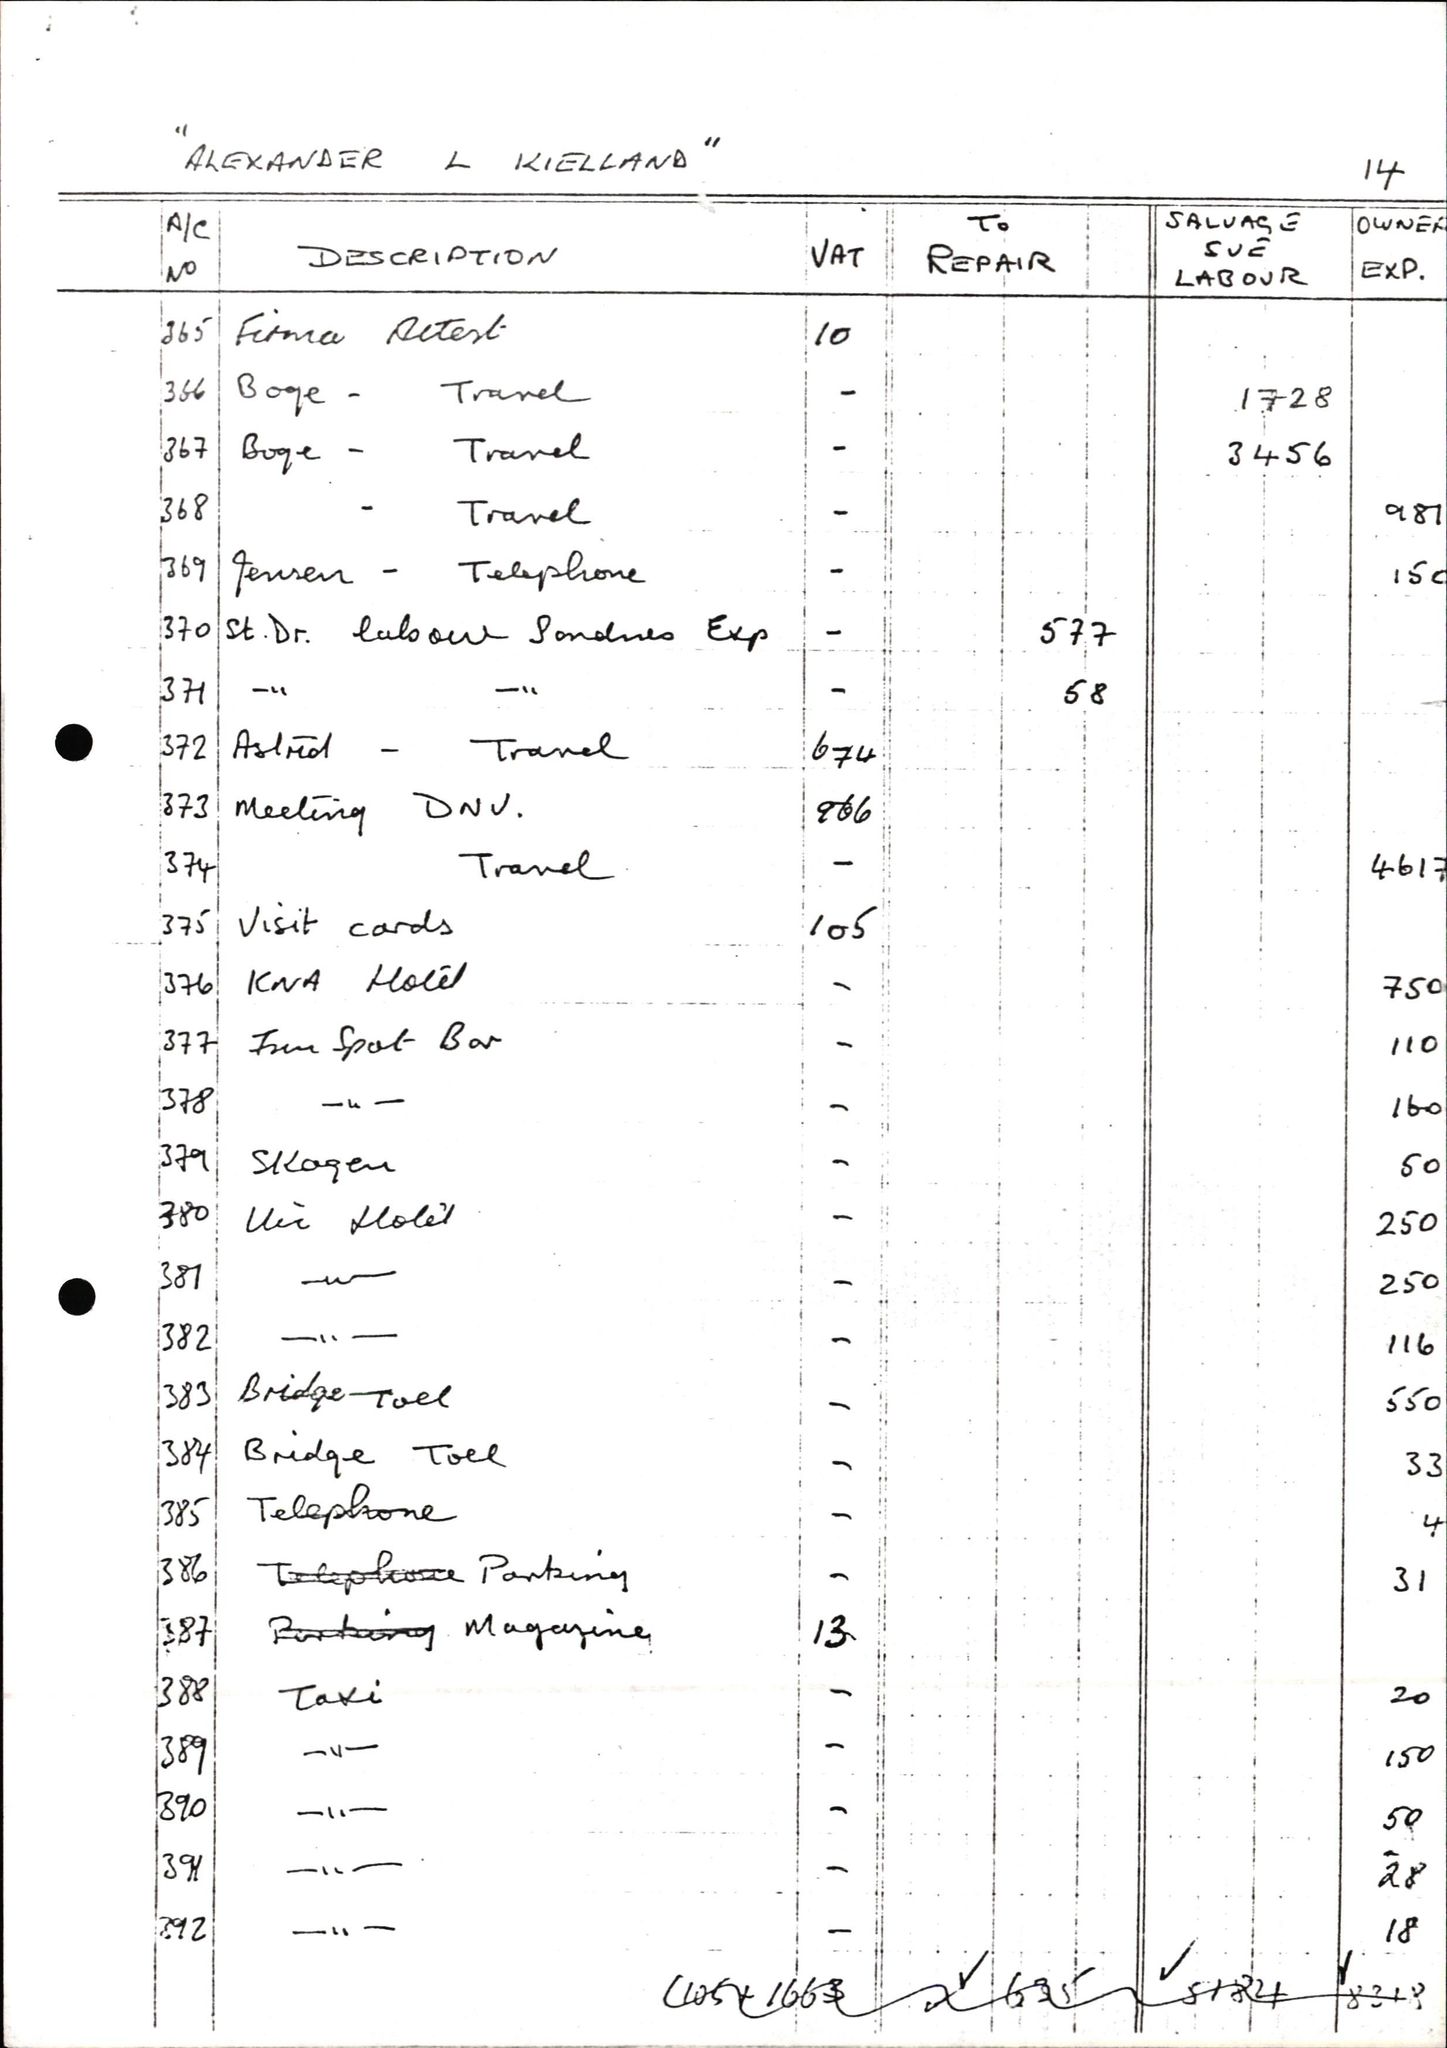 "ALEXANDER L KIELLAND"
14
A/C NO DESCRIPTION VAT TO REPAIR SALVAGE SUE LABOUR OWNER EXP.
365 Firma Attest 10
366 Boge - Travel - 1728
367 Boge - Travel - 3456
368 - Travel - 981
369 Jensen - Telephone - 150
370 St. Dr. labour Sandnes Exp - 577
371 -"- -"- - 58
372 Astrid - Travel 674
373 Meeting DNV. 866
374 Travel - 4617
375 Visit cards 105
376 KNA Hotel - 750
377 Fun Spot Bar - 110
378 -"- - 160
379 Skagen - 50
380 Hotel - 250
381 -"- - 250
382 -"- - 116
383 Bridge Toll - 550
384 Bridge Toll - 33
385 Telephone - 4
386 Telephone Parking - 31
387 Parking Magazine 13
388 Taxi - 20
389 -"- - 150
390 -"- - 50
391 -"- - 28
392 -"- - 18
1663 635 5184